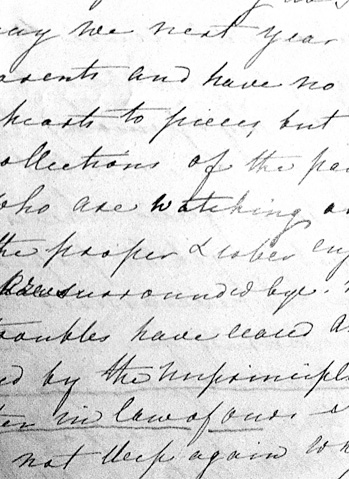 may we next year
arents and have no
hearts to pieces, but
ollections of the pa
who are watching o
the proper & sober en
surrounded by
troubles have ceased a
ed by the Unprincipl
ter in law of ours
not sleep again wh